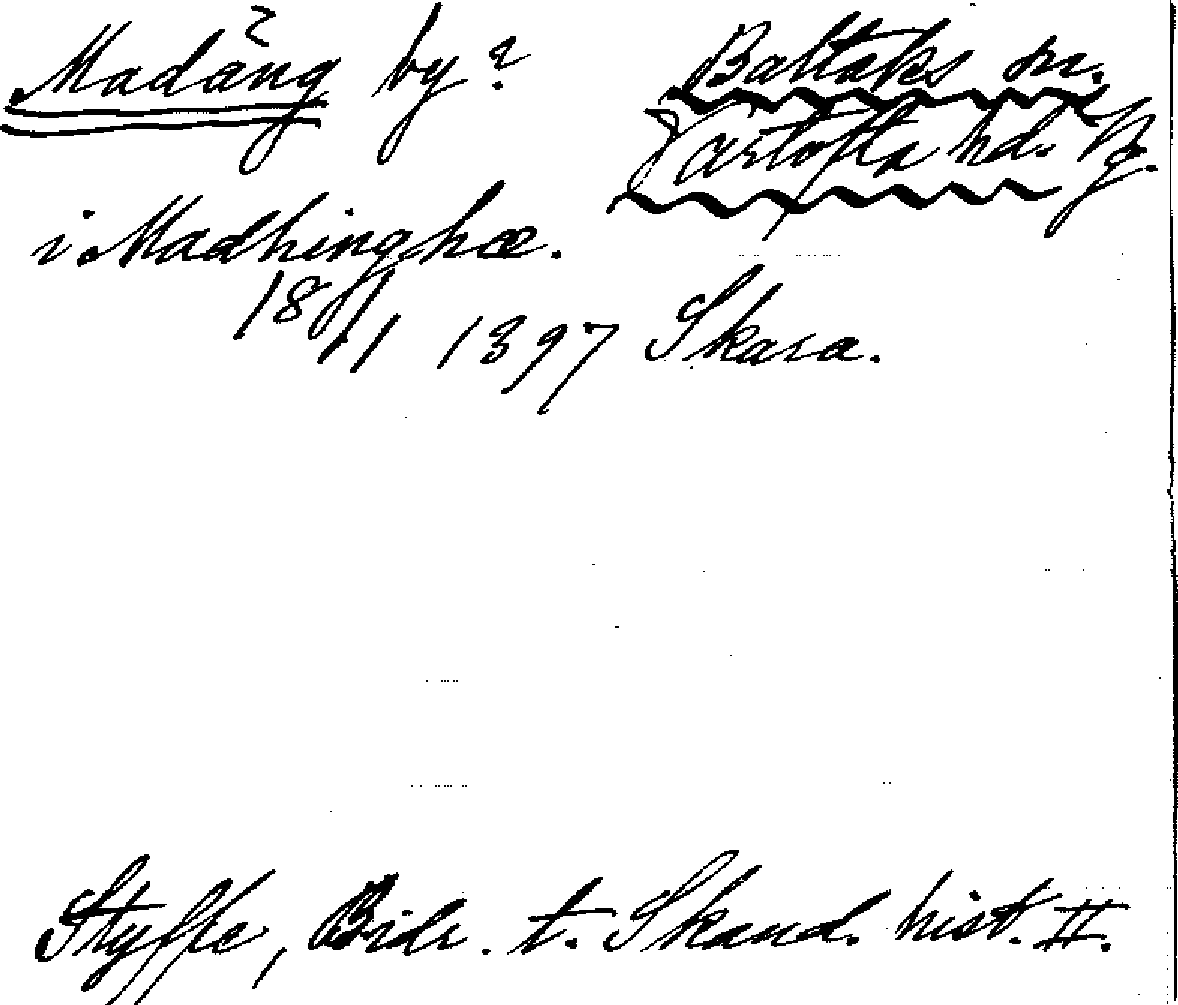 Madäng by? Baltaks sn.
Vartofta hd. Vg.
i Madhinghæ.
18/11 1397 Skara.
Styffe, Bidr. t. Skand. hist. II.